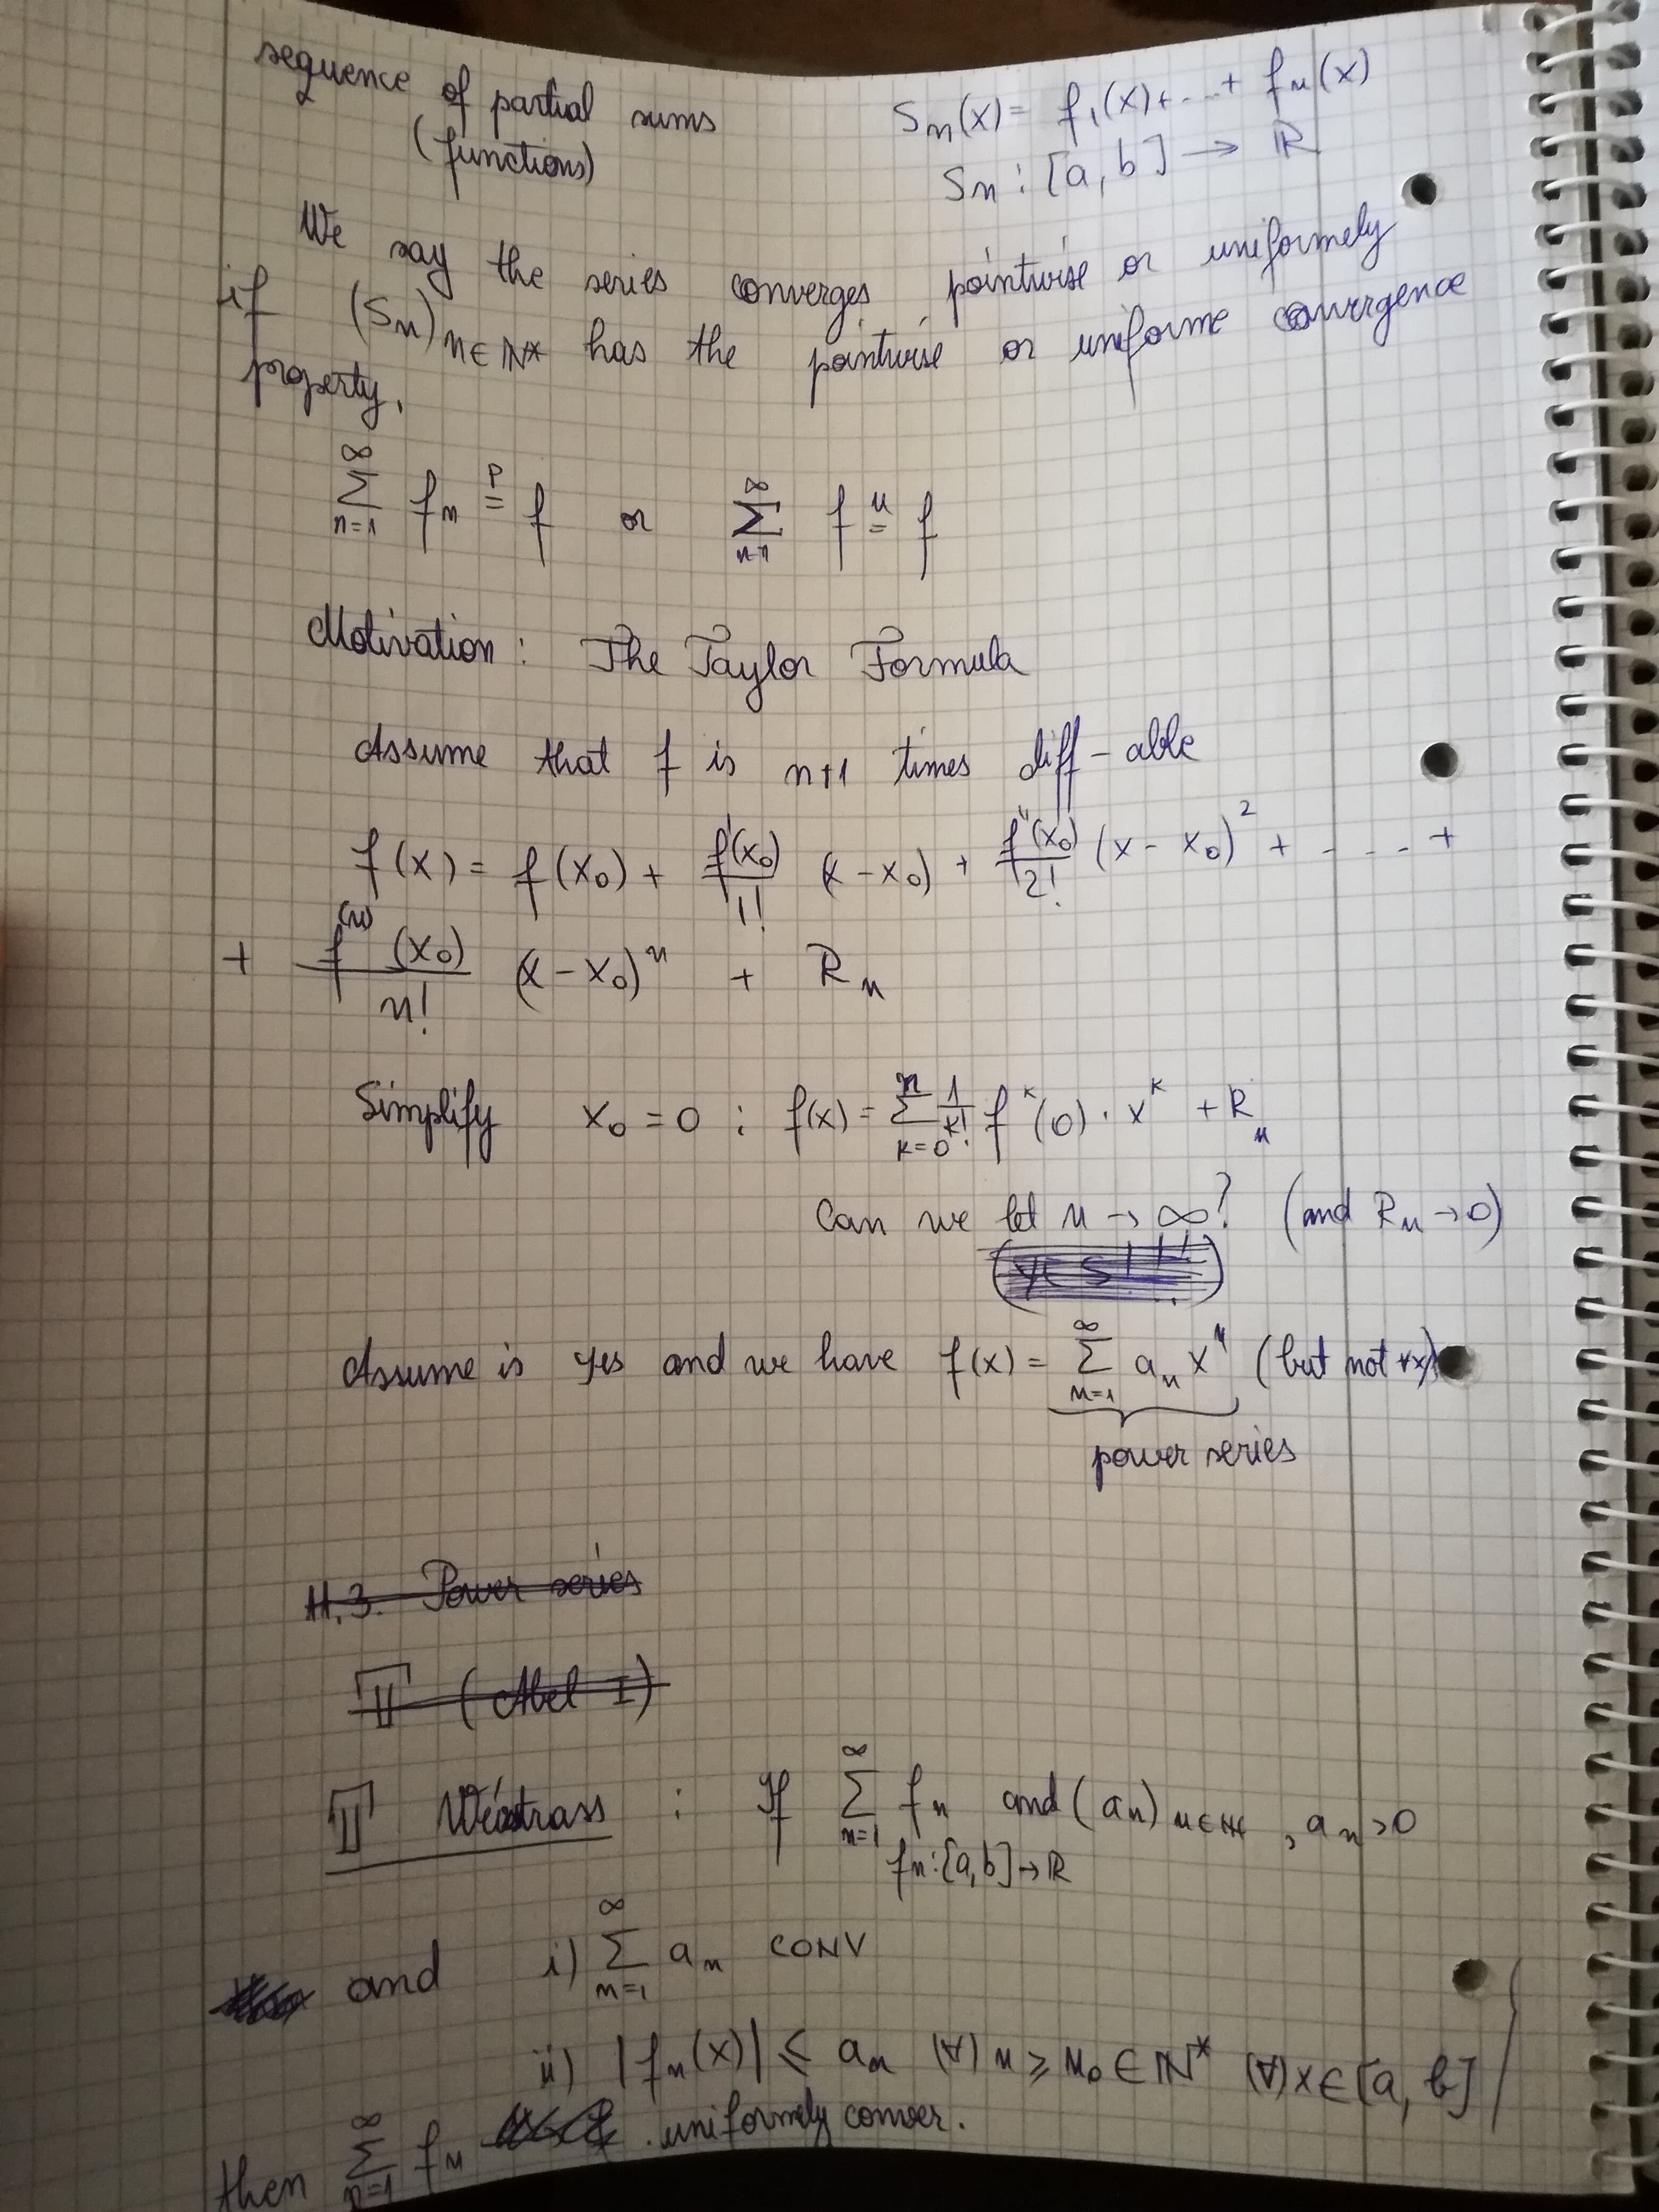 sequence of partial sums Sn(x) = f1(x)+...+ fn(x)
(functions) Sn : [a, b] → ℝ
We say the series converges pointwise or uniformely
if (Sn)n∈ℕ* has the pointwise or uniforme convergence
property.
∞∑n=1 fn =^p f or ∞∑n=1 f =^u f
Motivation : The Taylor Formula
Assume that f is n+1 times diff-able
f(x) = f(x0) + f'(x0)/1! (x-x0) + f''(x0)/2! (x-x0)^2 + ----+
+ f^(n)(x0)/n! (x-x0)^n + Rn
Simplify x0 = 0 : f(x) = n∑k=0 1/k! f^k(0) · x^k + Rn
Can we let n → ∞? (and Rn → 0)
(yes!!!)
Assume is yes and we have f(x) = ∞∑n=1 an x^n (but not ∀x)
power series
11.3. Power series
T (Abel I)
T : If ∞∑n=1 fn and (an)n∈ℕ*, an>0
fn:[a,b]→ℝ
and i) ∞∑n=1 an CONV
ii) |fn(x)| ≤ an (∀) n ≥ n0 ∈ ℕ* (∀)x∈[a, b]
then ∞∑n=1 fn uniformely conver.